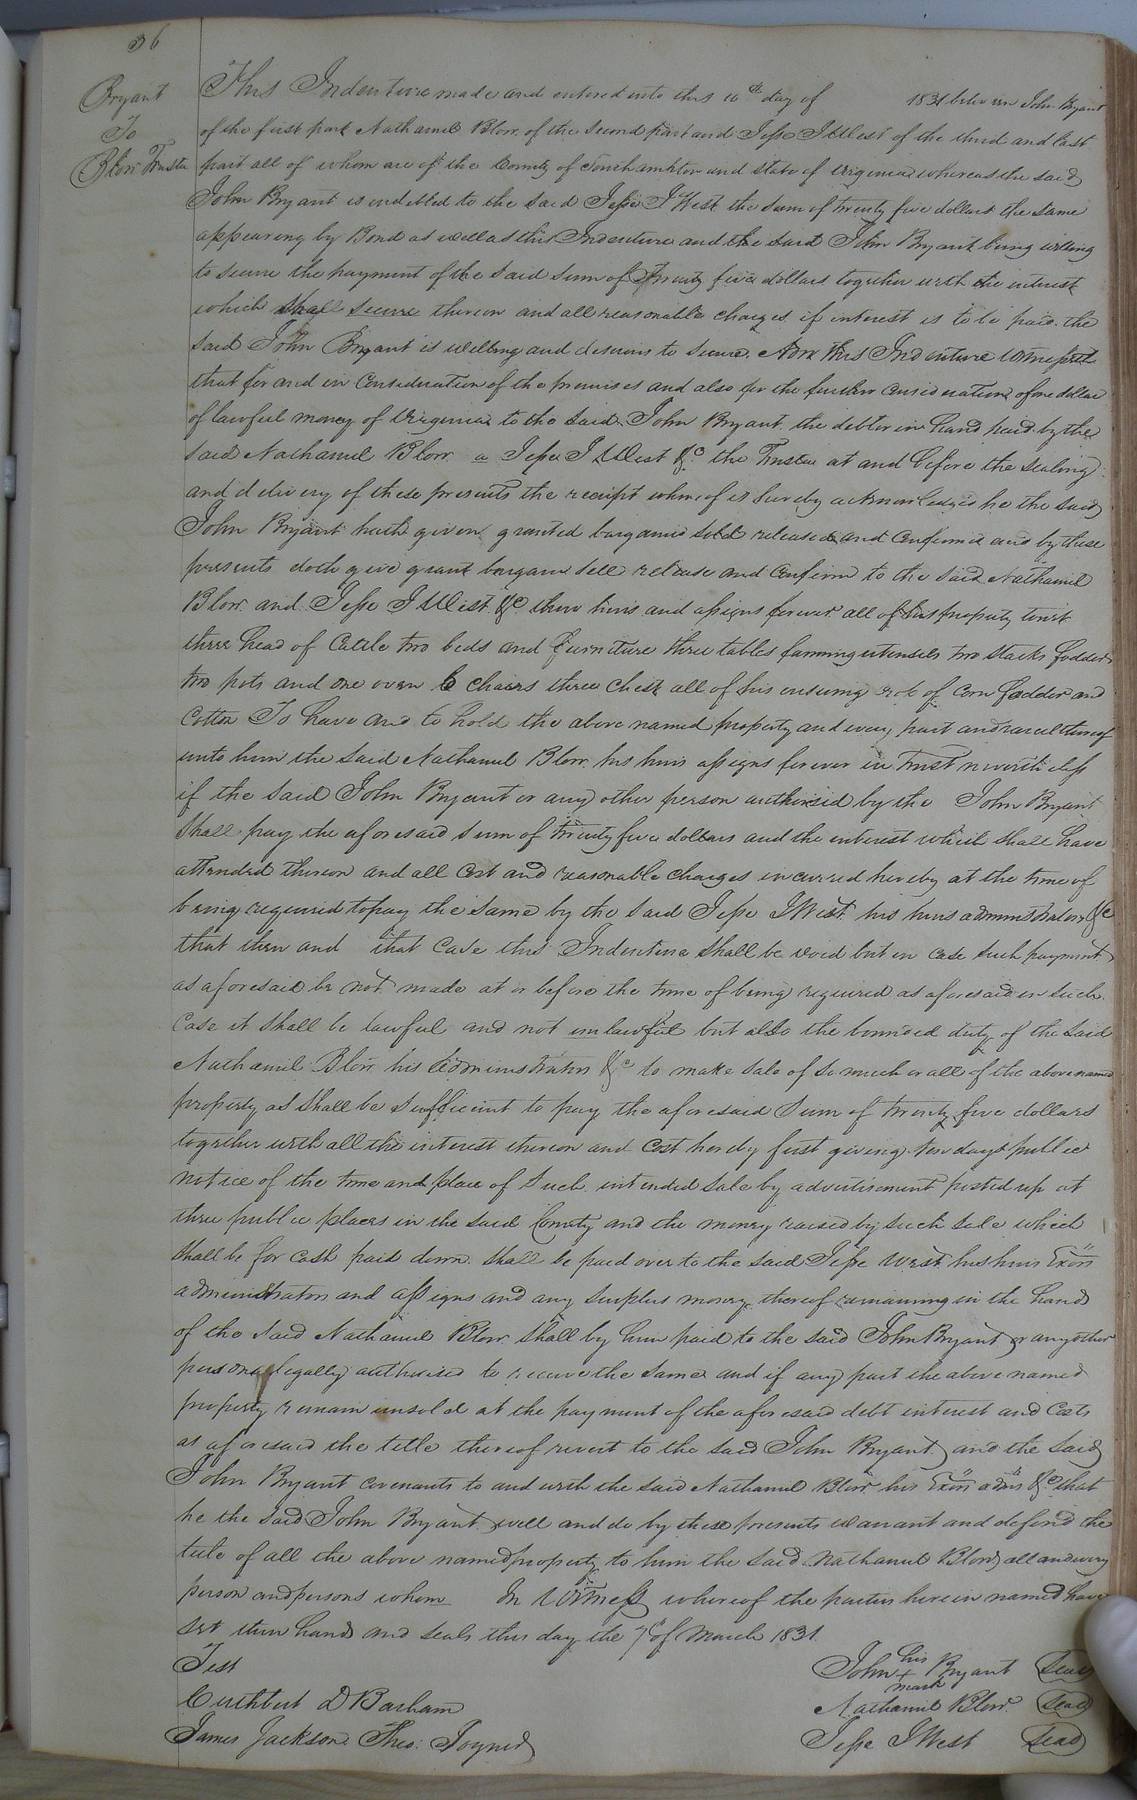 36
Bryant
To
Blow Trustee
This Indenture made and entered into this 10th day of 1831 between John Bryant
of the first part Nathaniel Blow of the Second part and Jesse J West of the third and last
part all of whom are of the County of Southampton and state of Virginia whereas the said
John Bryant is indebted to the said Jesse J West the sum of twenty five dollars the same
appearing by Bond as well as this Indenture and the said John Bryant being willing
to secure the payment of the said sum of Twenty five dollars together with the interest
which shall secure thereon and all reasonable charges if interest is to be paid the
said John Bryant is willing and desirous to secure. Now this Indenture witnesseth
that for and in Consideration of the premises and also for the further consideration of one dollar
of lawful money of Virginia to the said John Bryant the debtor in hand paid by the
said Nathaniel Blow a Jesse J West &c the Trustee at and before the sealing
and delivery of these presents the receipt whereof is hereby acknowledged he the said
John Bryant hath given granted bargained sold released and confirmed and by these
presents doth give grant bargain sell release and confirm to the said Nathaniel
Blow and Jesse J West &c there heirs and assigns forever all of his property towit
three head of Cattle two beds and furniture three tables farming utensils two stacks fodder
two pots and one oven 6 chairs three chest all of his ensuing of Corn fodder and
Cotton To have and to hold the above named property and every part and parcel thereof
unto him the said Nathaniel Blow his heirs assigns forever in Trust nevertheless
if the said John Bryant or any other person authorised by the John Bryant
shall pay the aforesaid sum of twenty five dollars and the interest which shall have
attended thereon and all Cost and reasonable charges incurred hereby at the time of
being required to pay the same by the said Jesse J West his heirs administrators &c
that then and that Case this Indenture shall be void but in case such payment
as aforesaid be not made at or before the time of being required as aforesaid in such
Case it shall be lawful and not unlawful but also the bounded duty of the said
Nathaniel Blow his Administrators &c to make sale of so much or all of the above named
property as shall be sufficient to pay the aforesaid sum of twenty five dollars
together with all the interest thereon and Cost hereby first giving ten days public
notice of the time and place of such intended sale by advertisement posted up at
three public places in the said County and the money raised by such sale which
shall be for cash paid down shall be paid over to the said Jesse West his heirs Exors
administrators and assigns and any surplus money thereof remaining in the hands
of the said Nathaniel Blow shall by him paid to the said John Bryant or any other
person legally authorised to receive the same and if any part the above named
property remain unsold at the payment of the aforesaid debt interest and Costs
as aforesaid the title thereof revert to the said John Bryant and the said
John Bryant covenants to and with the said Nathaniel Blow his Exors adms &c that
he the said John Bryant will and do by these presents warrant and defend the
title of all the above named property to him the said Nathaniel Blow all and every
person and persons whom In Witness whereof the parties herein named have
set their hands and seals this day the 7th of March 1831
Test
John his + mark Bryant Seal
Cuthbert D Barham
Nathaniel Blow Seal
James Jackson Theo: Joyner
Jesse J West Seal